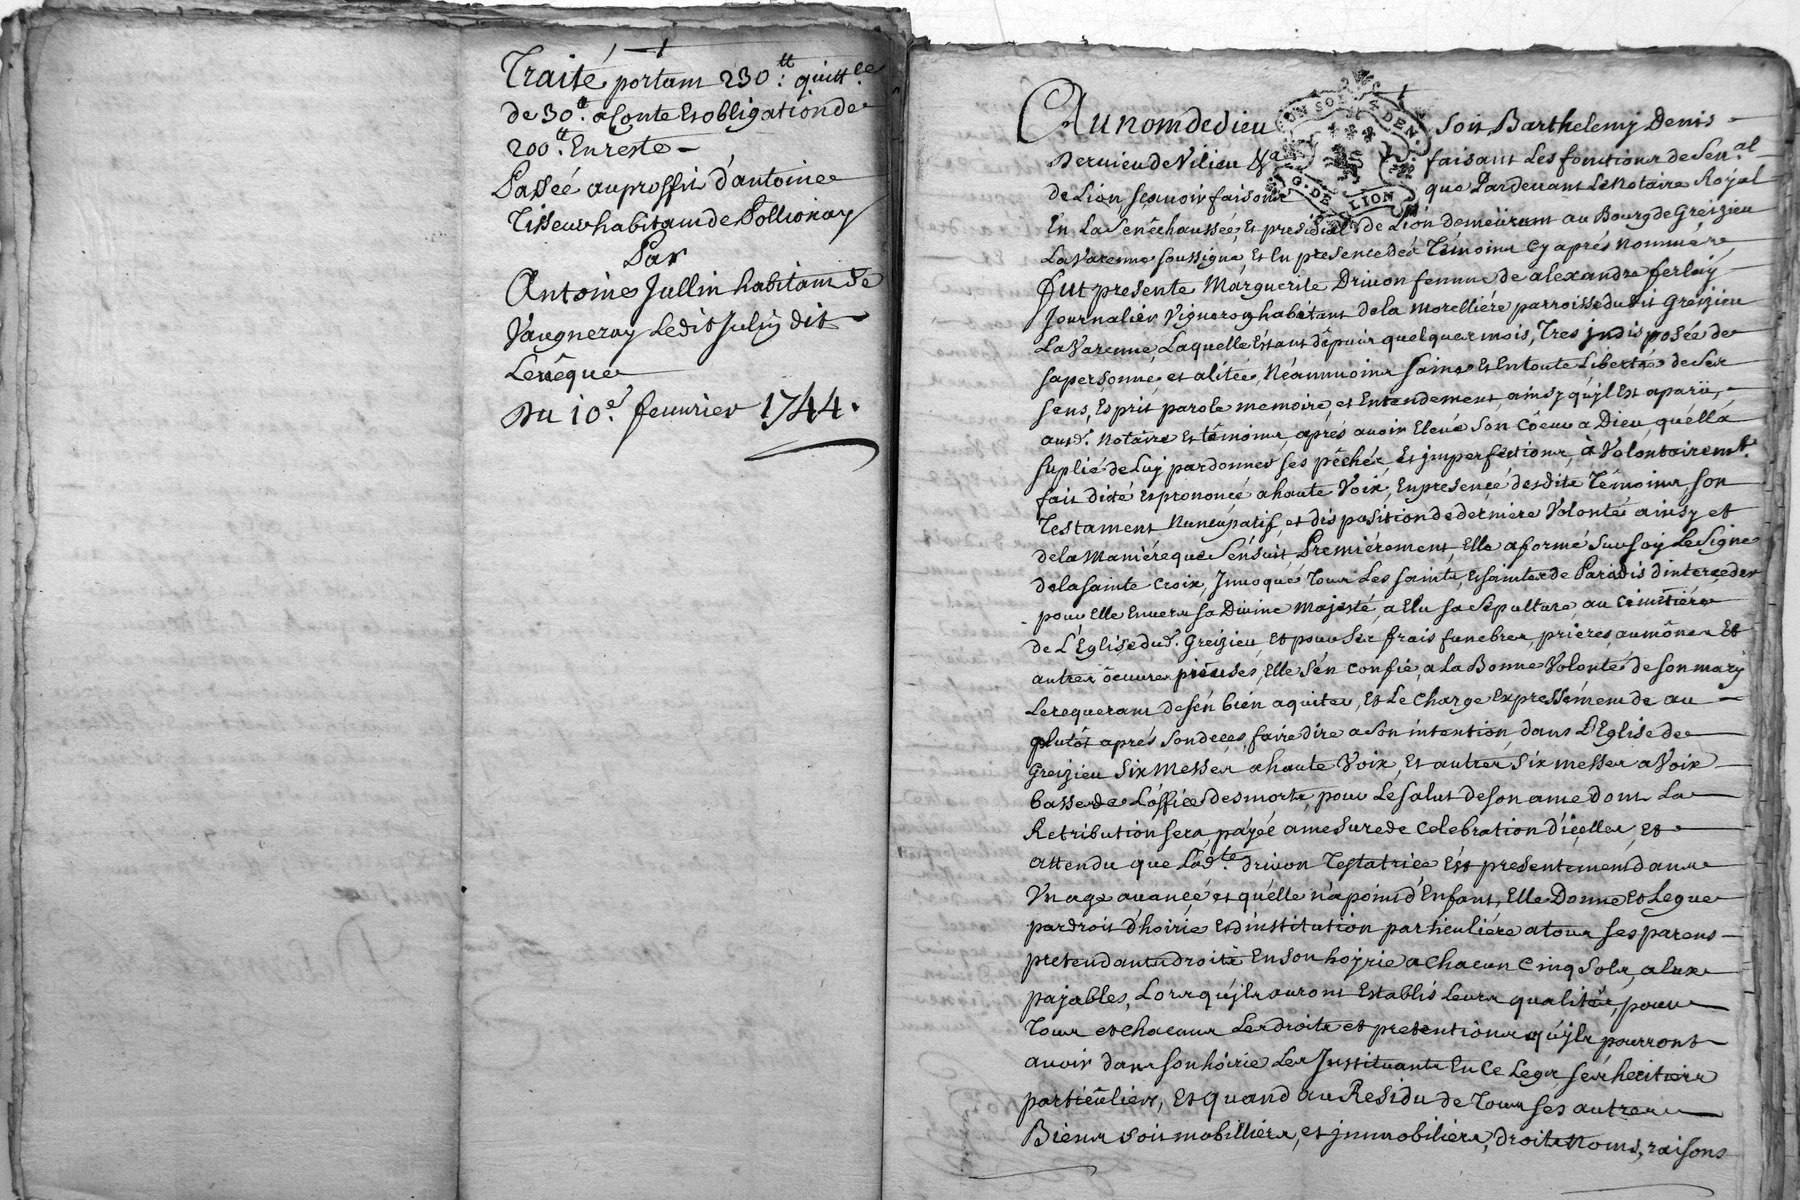 Traité portant 230ᵗᵗ: quittce
de 30ᵗᵗ a Conte Et obligation de
200ᵗᵗ. En reste —
Passée au proffit d'antoine
Tisseur habitant de Pollionay
Par
Antoine Jullin habitant de
Vaugneray Ledit Julin dit
Levêque
Du 10e. feuvrier 1744.
Au nom de dieu soit Barthelemy Denis
Dervieu de Vilieu faisant Les fonctions de Sen.al
de Lion, sçavoir faisons que Pardevant Le Notaire Royal
En La Sénêchaussée, Et presidial de Lion demeurant au Bourg de Greizieu
La Varenne soussigné, Et En presence des Témoins Cy aprés Nommés,
fut presente Marguerite Drivon femme de alexandre ferlay
Journalier Vigneron habitant de la Morelliére parroisse dudit Greizieu
La Varenne, Laquelle Estant dêpuis quelques mois, Tres jndisposée de
sa personne et alitée, Néanmoins saine Et En toute Liberté de Ses
sens, Esprit parole memoire, et Entendement, ainsy qu'jl Est aparü,
ausd. Notaire Et têmoins, aprés avoir Elevé Son Cœur a Dieu, qu'élla
suplié de Luy pardonner ses pêchés, Et jmperfections, à Volontairemt.
fait dicté Et prononcé a haute Voix, En presence desdits Témoins, son
Testament Nuncupatif, et disposition de derniere Volonté ainsy et
de la Maniére que S'énsuit, Premiérement, Elle a formé Sur soy Le Signe
de la Sainte Croix, Jnvoqué Tous Les saints, Et saintes de Paradis d'interceder
pour Elle Envers sa Divine Majesté, a Elu sa Sepulture au Cimitiére
de L'Eglise dud. Greizieu, Et pour Ses frais funebres, prieres, aumônes Et
autres œuvres piêuses, Elle s'én confie, a La Bonne Volonté de son mary
Le requerant de s'én bien aquiter, Et Le Charge Expressément de au
plutôt aprés son deces, faire dire a Son intention, dans L'Eglise de
Greizieu Six Messes a haute Voix, Et autres Six messes a Voix
basse de L'office des morts, pour Le salut de son ame dont La
Retribution sera payée a mesure de Celebration d'iceller, Et
attendu que Lad.te drivon Testatrice Est presentement dans
Un age avancé et qu'élle n'a point d'Enfant, Elle Donne et Legue
par droit d'hoirie, Et d'institution particuliére a tous ses parens
pretendants droits En son hoyrie a Chacun Cinq Sols, a Eux
payables, Lors qu'jls auront Establis Leurs qualités, pour
Tous et chacuns Les droits et pretentions qu'jls pourront
avoir dans son hoirie Les Jnstituants En Ce Legs, ses heritiers
particûliers, Et quand au Residu de Tous ses autres
Biens soit mobilliers, et jmmobiliers, droits Noms, raisons